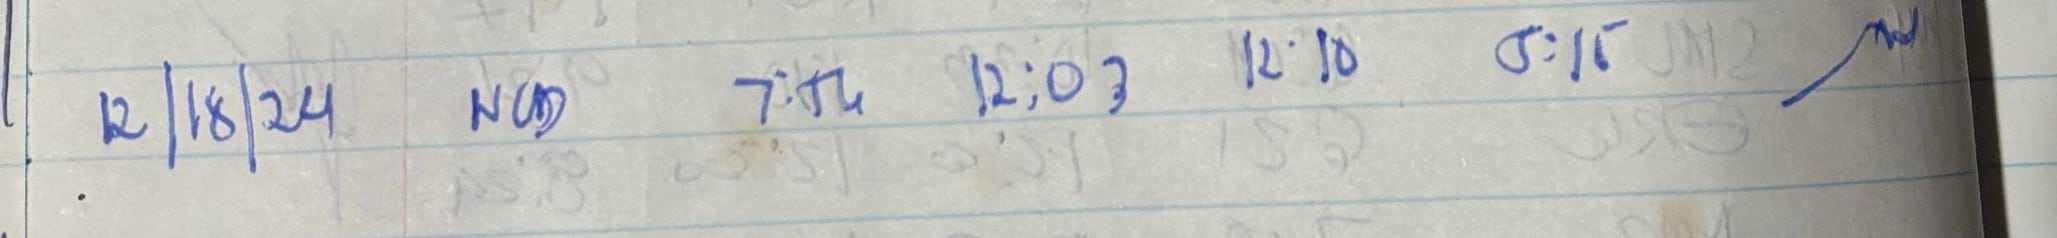 12/18/24 NCD 7:54 12:03 12:10 5:15